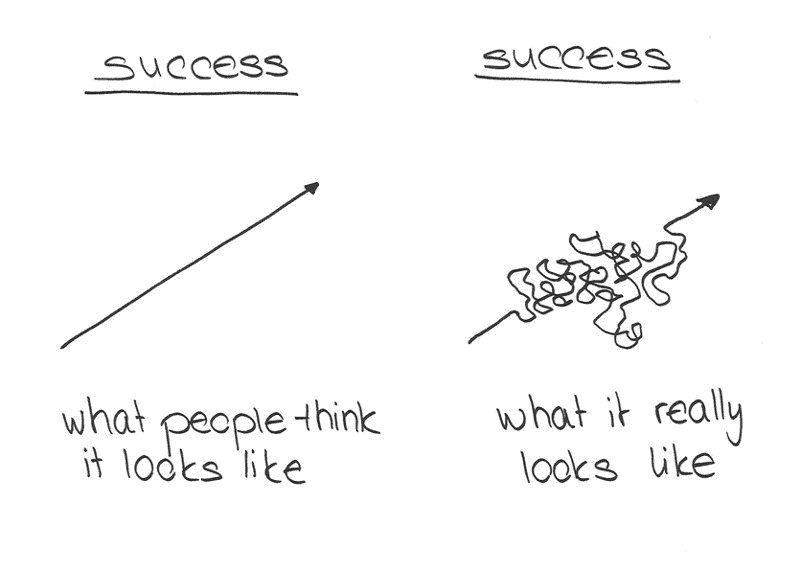 success
what people think
it looks like
success
what it really
looks like